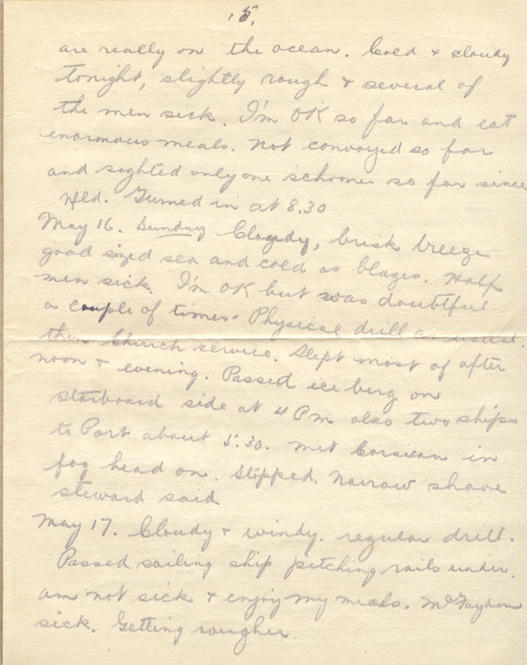 15.
are really on the ocean. Cold & cloudy
tonight, slightly rough & several of
the men sick. I'm OK so far and eat
enormous meals. Not convoyed so far
and sighted only one schooner so far since
Nfld. Turned in at 8.30
May 16. Sunday Cloudy, brisk breeze
good sized sea and cold as blazes. Half
men sick. I'm OK but was doubtful
a couple of times. Physical drill as usual.
then Church service. Slept most of after
noon & evening. Passed ice berg on
starboard side at 4 PM also two ships
to Port about 5.30. Met Corsican in
fog head on. Stopped. Narrow shave
steward said
May 17. Cloudy & windy. regular drill.
Passed sailing ship pitching rails under.
am not sick & enjoy my meals. McFayden
sick. Getting rougher.